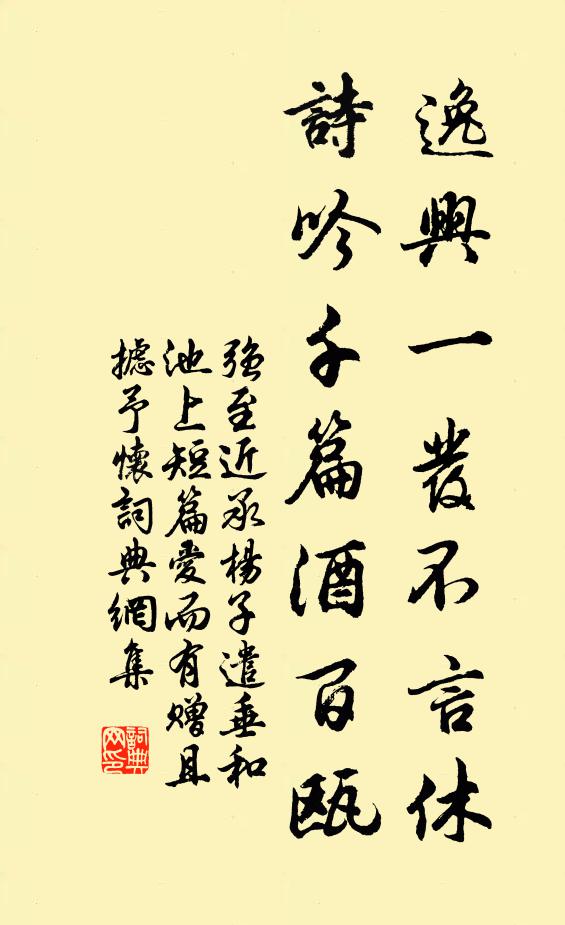 逸興一發不言休
詩吟千篇酒百甌
強至近承楊子遣垂和
池上短篇愛而有贈且
攄予懷詞典網集
詞典網印